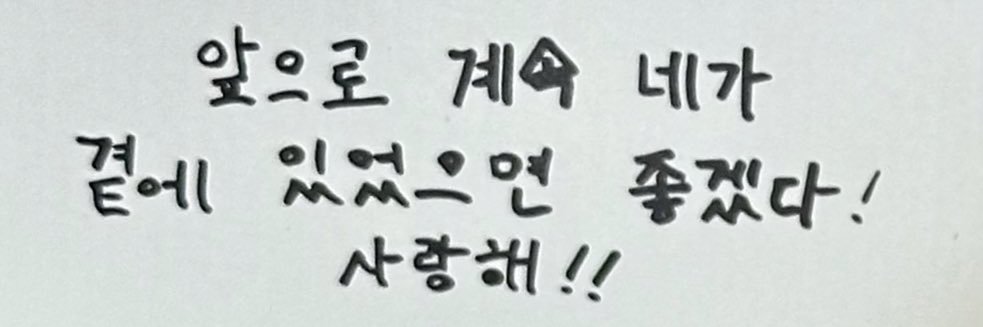 앞으로 계속 네가
곁에 있었으면 좋겠다!
사랑해!!